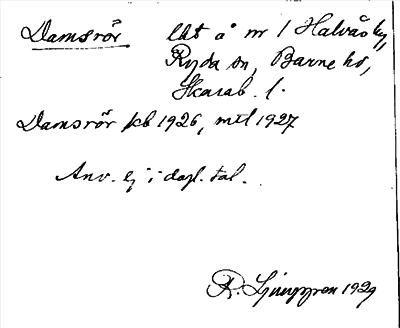 Damsrör lht å nr 1 Halvås by,
Ryda sn, Barne hd,
Skarab. l.
Damsrör jbb 1926, mtl 1927
Anv. ej i dagl. tal.
R. Ljunggren 1929